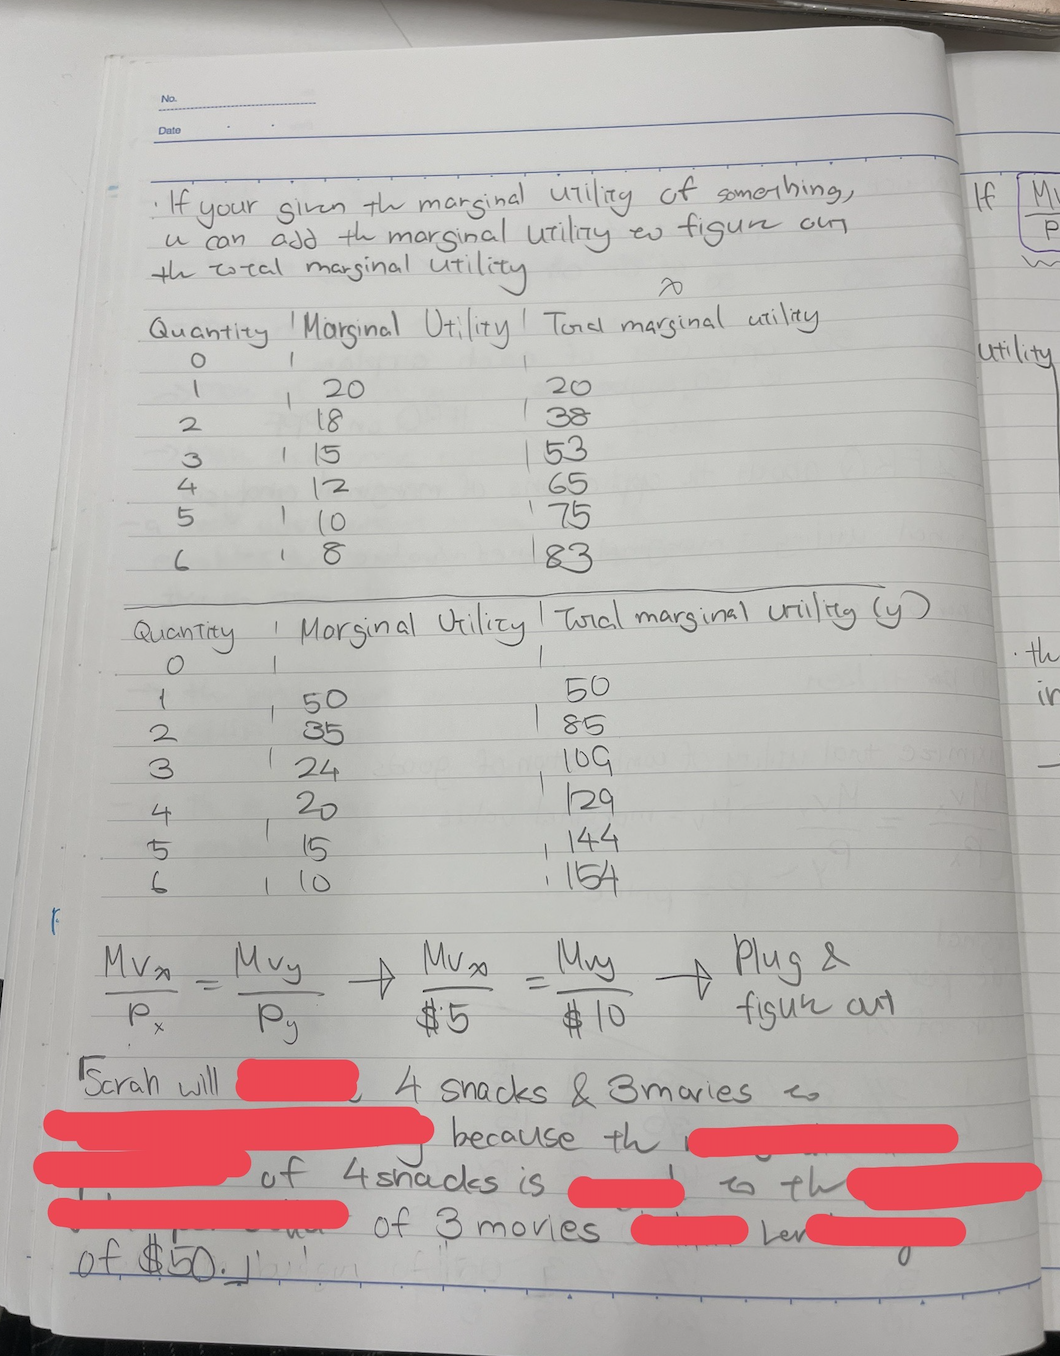 No.
Date
· If your given th marginal utility of something,
u can add th marginal utility to figure out
th total marginal utility
x
Quantity Marginal Utility Total marginal utility
0
1 20 20
2 18 38
3 15 53
4 12 65
5 10 75
6 8 83
Quantity Marginal Utility Total marginal utility (y)
0
1 50 50
2 35 85
3 24 109
4 20 129
5 15 144
6 10 154
MUx/Px = MUy/Py → MUx/$5 = MUy/$10 → Plug & figure out
「Sarah will 4 snacks & 3 movies to
because th
of 4 snacks is to th
of 3 movies
of $50.」
If MU
P
utility
· th
in